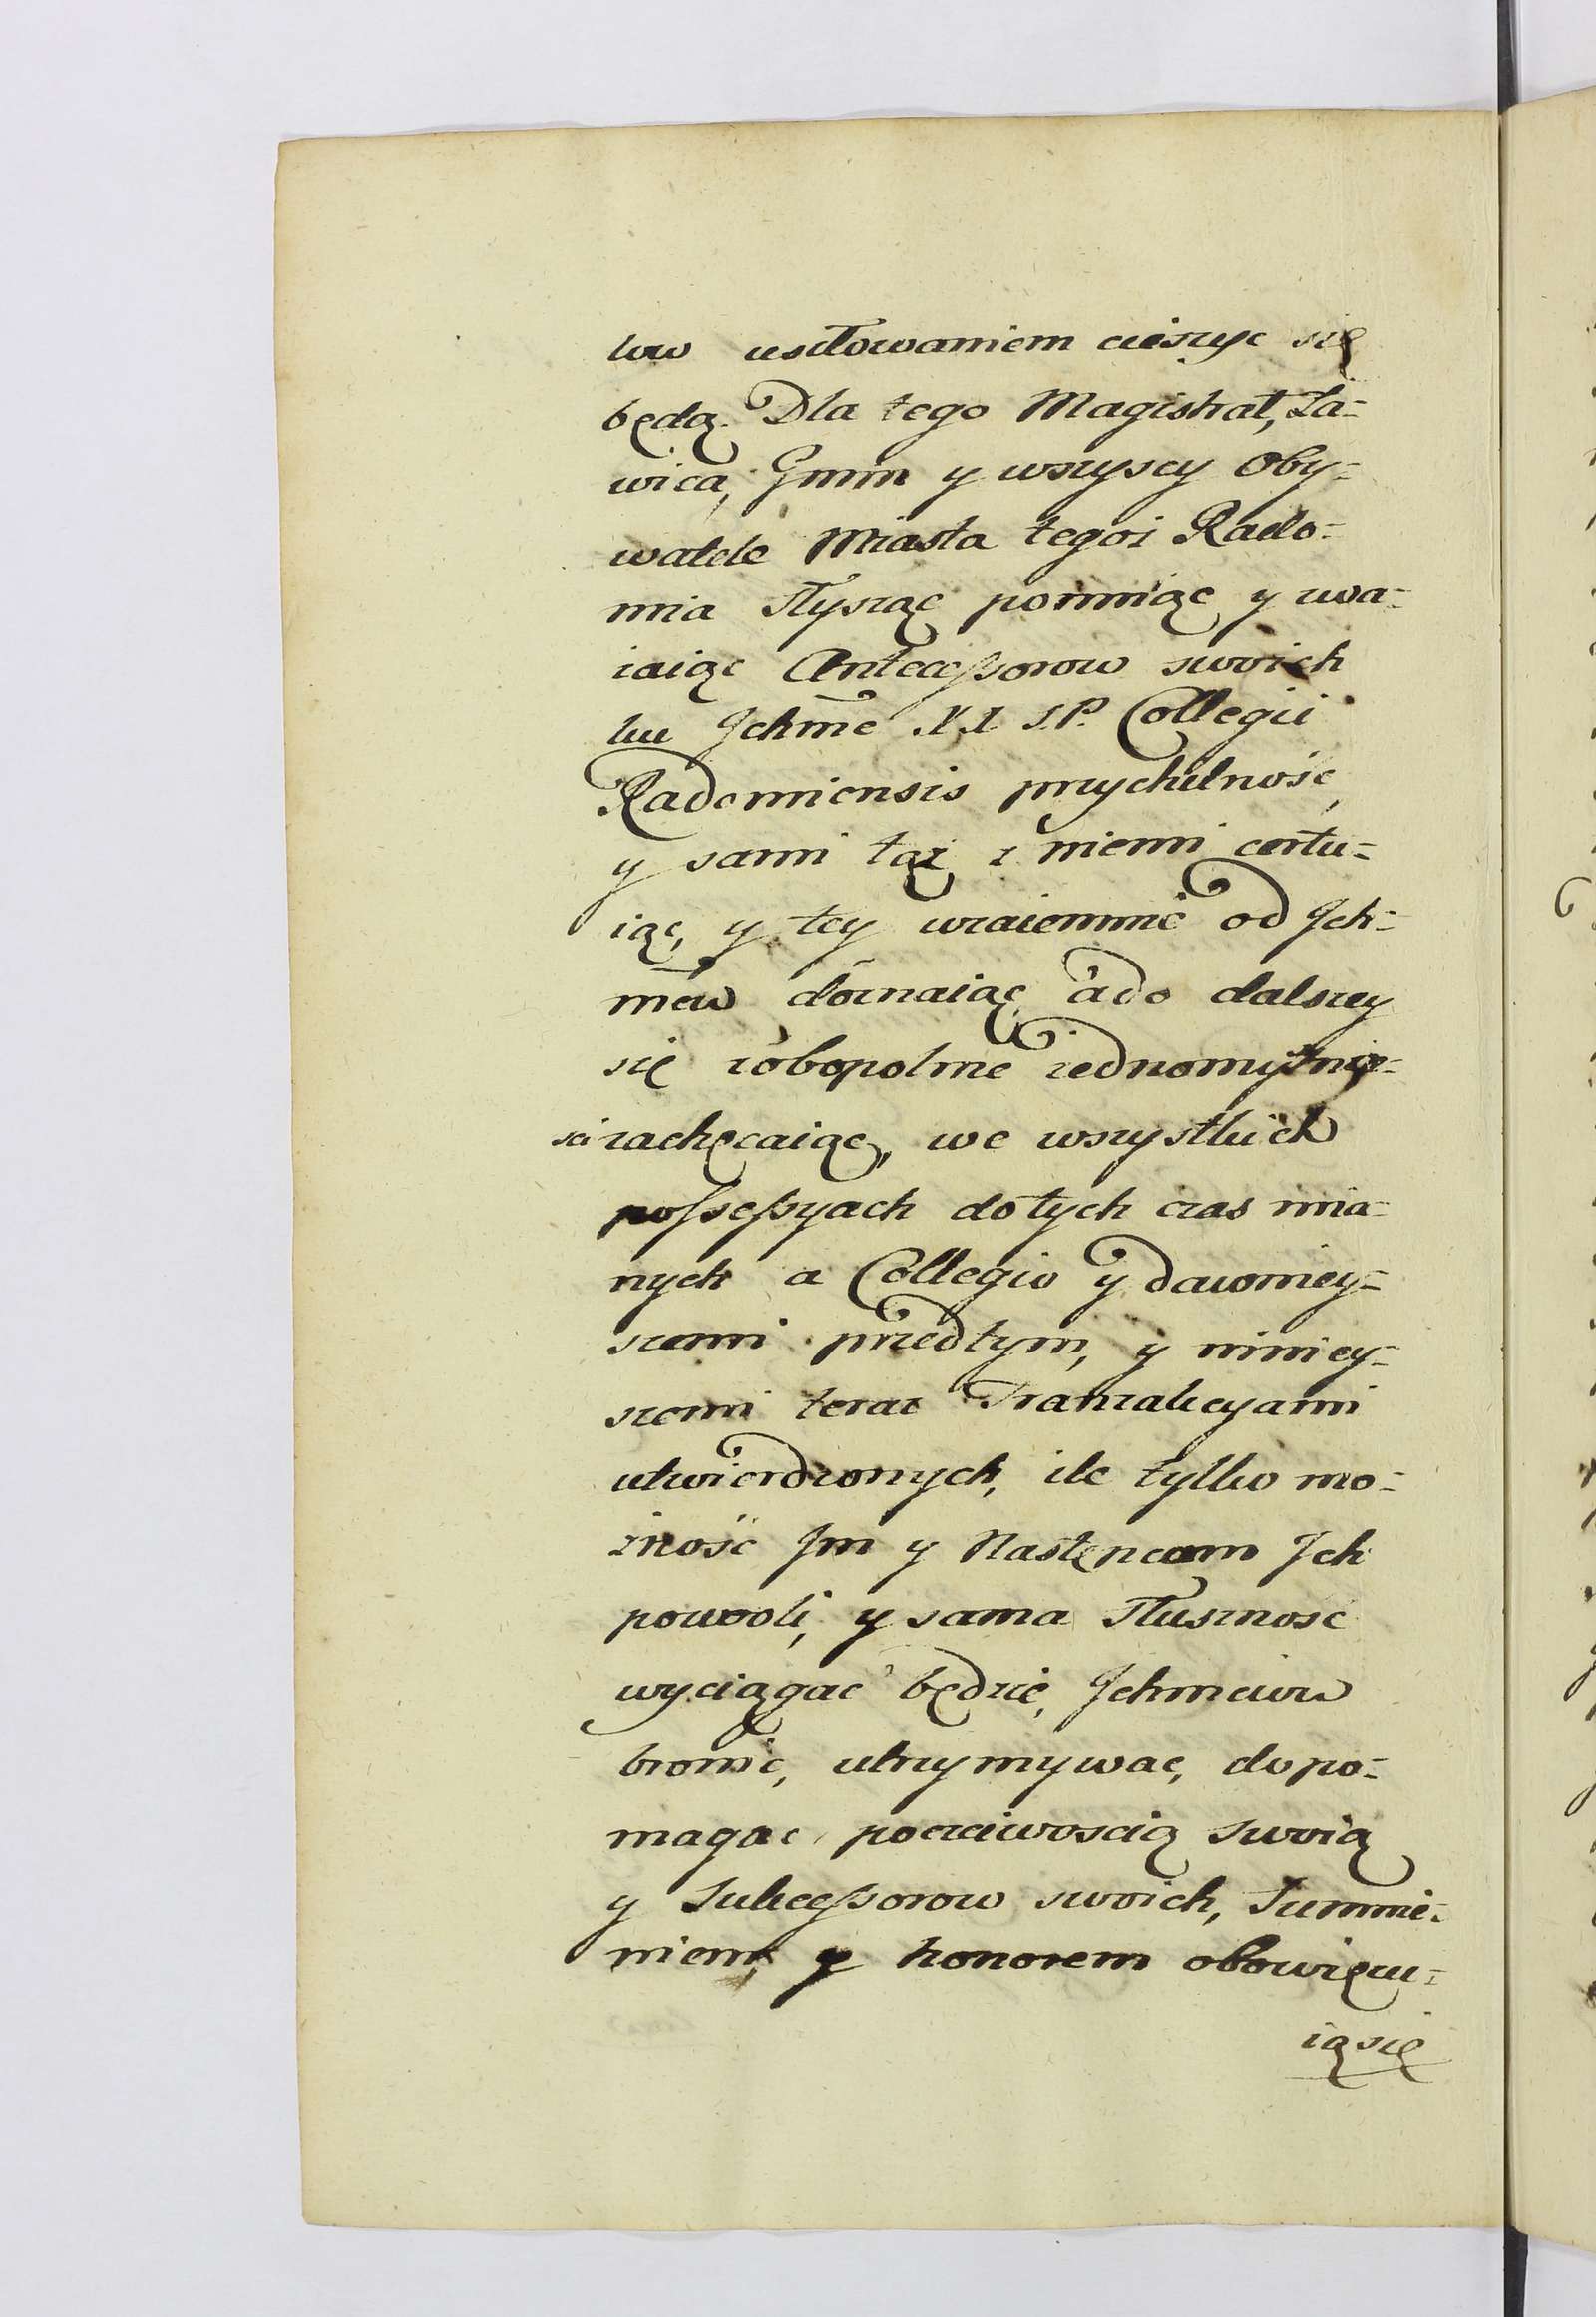 kow usiłowaniem cieszyc się
będą. Dla tego Magistrat, Ła=
wica, Gmin y wszyscy Oby=
watele Miasta tegoż Rado=
mia słysząc pomniąc y uwa=
żaiąc Antecessorow swoich
ku Jchmc X.X. S.P. Collegii
Radomiensis przychilność,
y sami tąż z niemi certu=
iąc, y tey wzaiemnie od Jch=
mciw doznaiąc ado dalszey
się zobopolnie iednomyślno=
sci zachęcaiąc, we wszystkich
possessyach dotych czas mia=
nych a Collegio y dawniey=
szemi przedtym, y niniey=
szemi teraz Tranzakcyami
utwierdzonych, ile tylko mo=
żność Jm y Następcom Jch
powoli, y sama słuszność
wyciągać będzie, Jchmciow
bronić, utrzymywac, dopo=
magac poczciwoscią swoią
y Sukcessorow swoich, Sumnie=
niem, y honorem obowięzu=
ią się